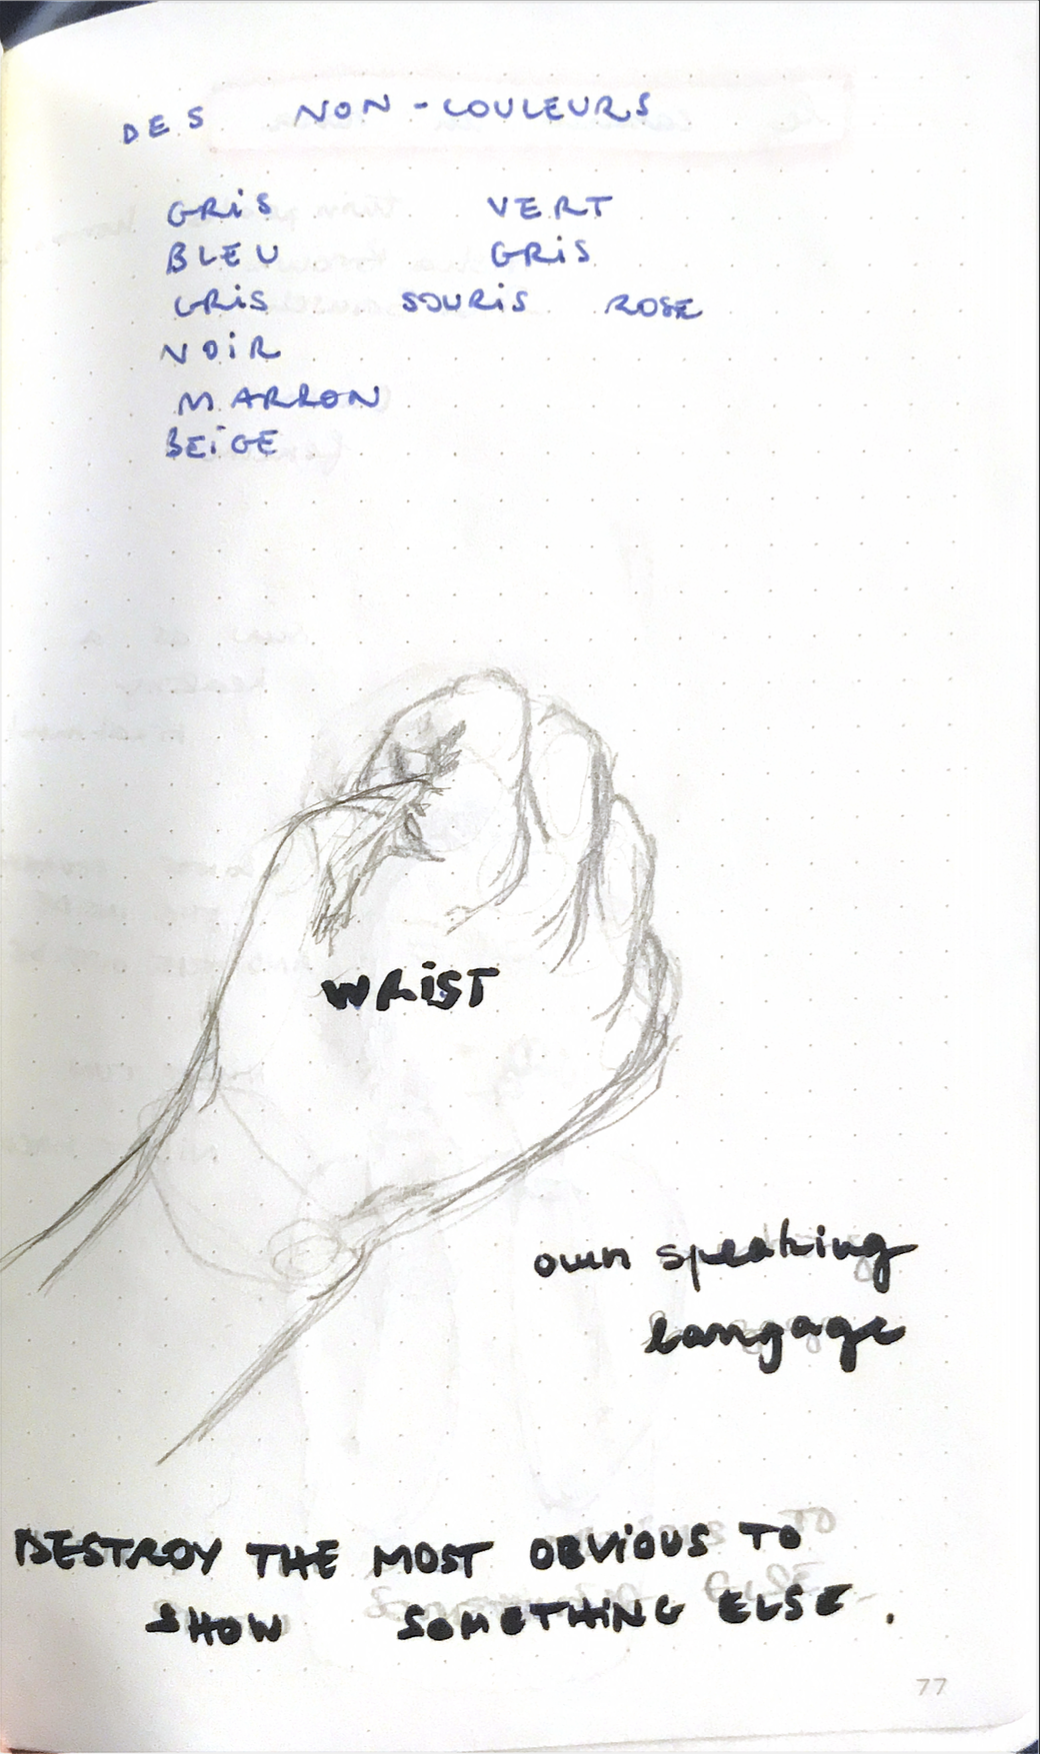 DES NON-COULEURS
GRiS VERT
BLEU GRiS
GRiS SOURiS ROSE
NOiR
MARRON
BEiGE
WRiST
own speaking
langage
DESTROY THE MOST OBViOUS TO
SHOW SOMETHiNG ELSE.
77